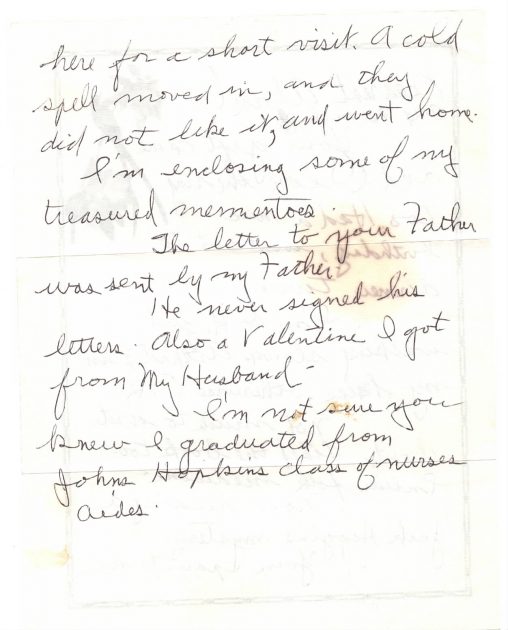 here for a short visit. A cold
spell moved in, and they
did not like it, and went home.
I'm enclosing some of my
treasured mementoes.
The letter to your Father
was sent by my Father.
He never signed his
letters. Also a Valentine I got
from My Husband -
I'm not sure you
knew I graduated from
Johns Hopkins class of nurses
aides.